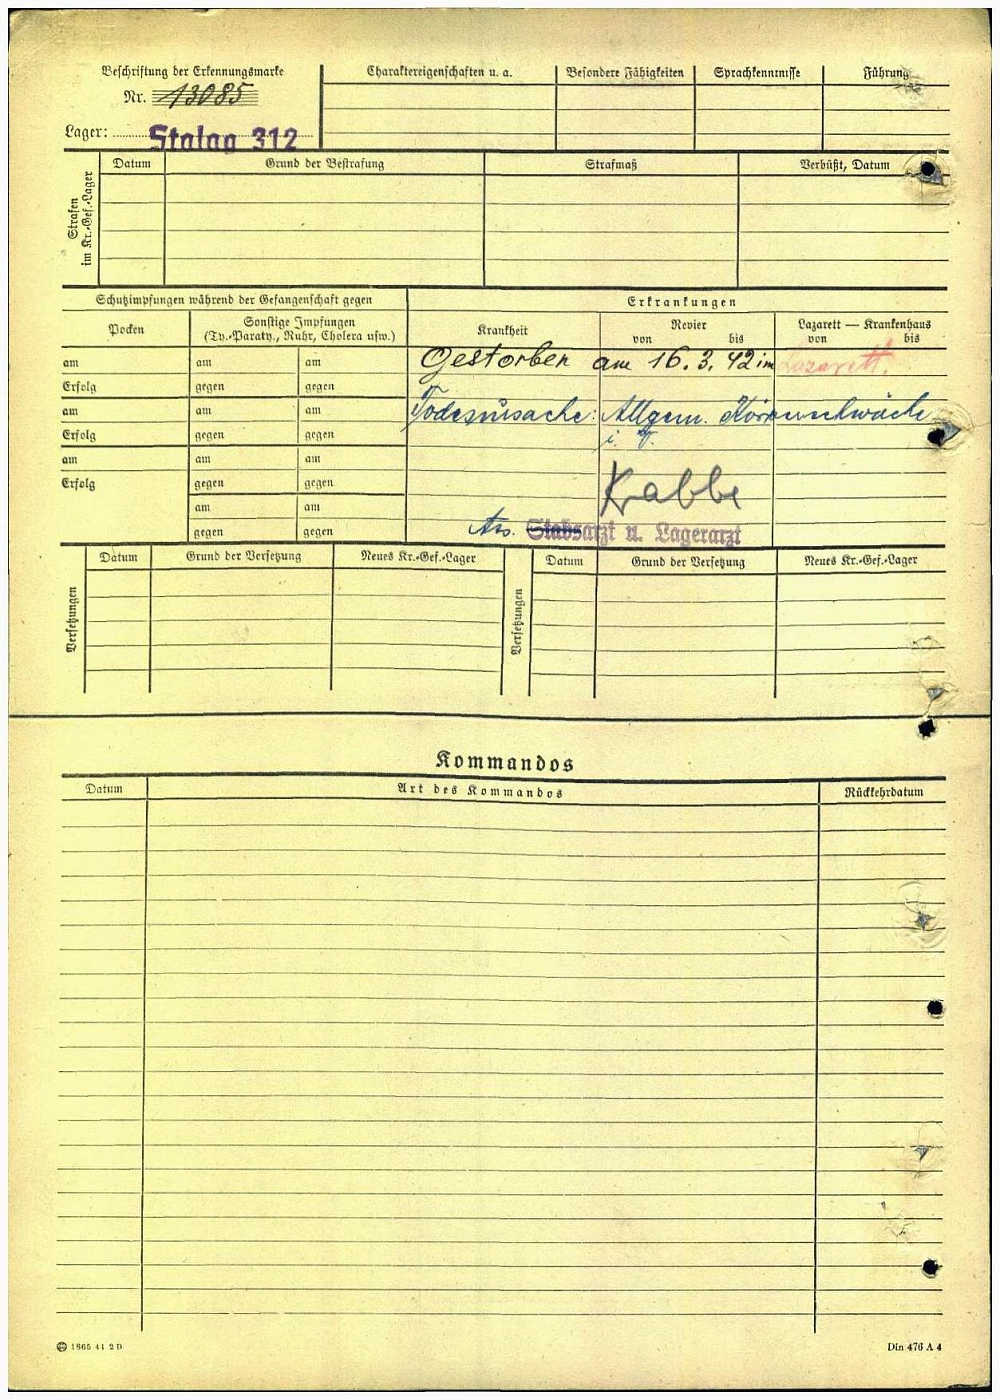 Beschriftung der Erkennungsmarke
Nr. 13085
Lager: Stalag 312
Charaktereigenschaften u. a.
Besondere Fähigkeiten
Sprachkenntnisse
Führung
Strafen im Kr.-Gef.-Lager
Datum
Grund der Bestrafung
Strafmaß
Verbüßt, Datum
Schutzimpfungen während der Gefangenschaft gegen
Erkrankungen
Pocken
Sonstige Impfungen
(Ty.-Paraty., Ruhr, Cholera usw.)
Krankheit
Revier
von bis
Lazarett — Krankenhaus
von bis
am am am
Gestorben am 16.3.42 im Lazarett.
Erfolg gegen gegen
am am am
Todesursache: Allgem. Körperschwäche
Erfolg gegen gegen
i. V.
am am am
Erfolg gegen gegen
Krabbe
am am
gegen gegen
Ass. Stabsarzt u. Lagerarzt
Versetzungen
Datum
Grund der Versetzung
Neues Kr.-Gef.-Lager
Versetzungen
Datum
Grund der Versetzung
Neues Kr.-Gef.-Lager
Kommandos
Datum
Art des Kommandos
Rückkehrdatum
1865 41 2 D
Din 476 A 4